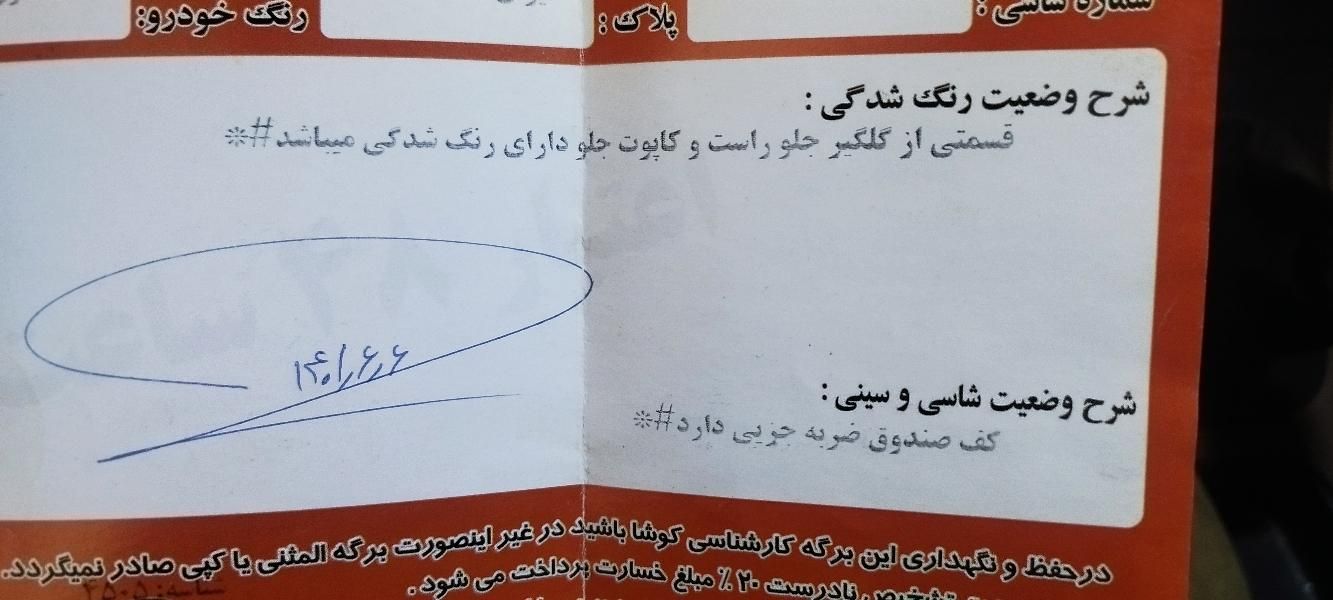 شماره شاسی :
پلاک :
رنگ خودرو:
شرح وضعیت رنگ شدگی :
قسمتی از گلگیر جلو راست و کاپوت جلو دارای رنگ شدگی میباشد#*
اعتبار ۴۸ ساعت
۱۴۰۱٫۶٫۶
شرح وضعیت شاسی و سینی :
کف صندوق ضربه جزیی دارد#*
درحفظ و نگهداری این برگه کارشناسی کوشا باشید در غیر اینصورت برگه المثنی یا کپی صادر نمیگردد.
تشخیص نادرست ۲۰٪ مبلغ خسارت پرداخت می شود.
شناسه: ۴۵۰۵